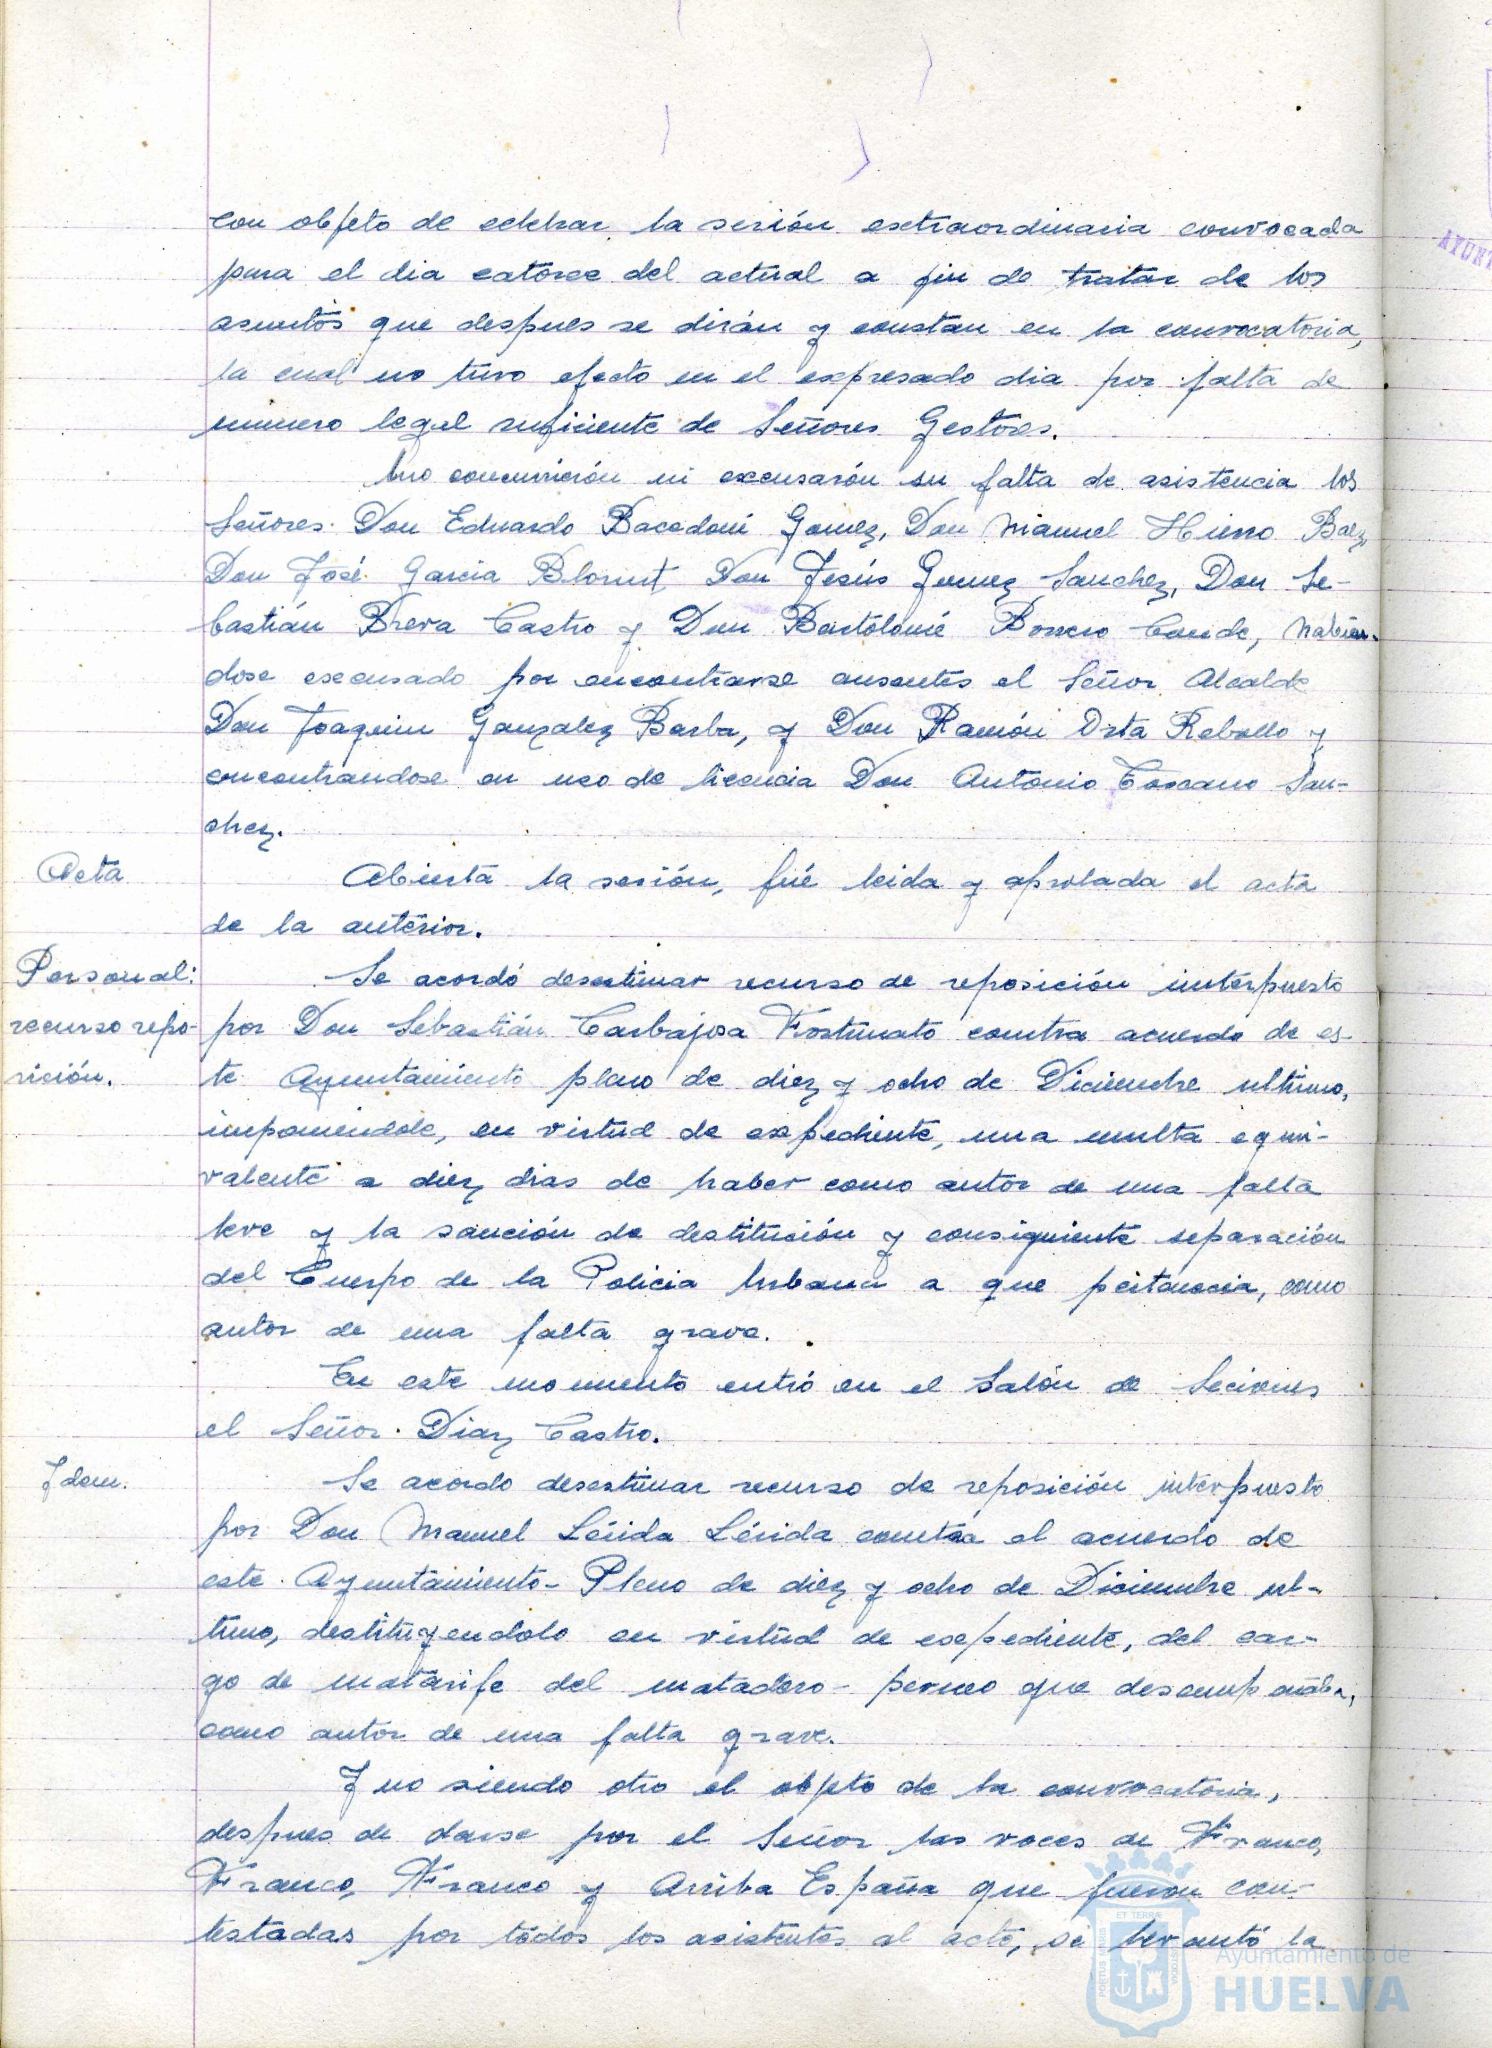 con objeto de celebrar la sesión extraordinaria convocada
para el dia catorce del actual a fin de tratar de los
asuntos que despues se dirán y constan en la convocatoria,
la cual no tuvo efecto en el expresado dia por falta de
numero legal suficiente de Señores Gestores.
No concurrición ni excusarón su falta de asistencia los
Señores Don Eduardo Bacedoni Gomez, Don Manuel Hierro Baez,
Don José Garcia Blorust Don Jesús Gomez Sanchez, Don Se-
bastián Breva Castro y Don Bartólomé Borrero Conde, habien-
dose excusado por encontrarse ausentes el Señor Alcalde
Don Joaquin Gonzalez Barba, y Don Ramón Orta Rebollo y
encontrandose en uso de licencia Don Antonio Toscano San-
chez.
Acta
Abierta la sesión, fué leida y aprobada el acta
de la anterior.
Personal:
recurso repo-
sición.
Se acordó desestimar recurso de reposición interpuesto
por Don Sebastián Carbajosa Fortunato contra acuerdo de es-
te Ayuntamiento pleno de diez y ocho de Diciembre ultimo,
imponiendole, en virtud de expediente, una multa equi-
valente a diez dias de haber como autor de una falta
leve y la sanción de destitución y consiguiente separación
del Cuerpo de la Policia Urbana a que pertenecia, como
autor de una falta grave.
En este momento entró en el Salón de Seciones
el Señor Diaz Castro.
Idem.
Se acordo desestimar recurso de reposición interpuesto
por Don Manuel Lérida Lérida contra el acuerdo de
este Ayuntamiento-Pleno de diez y ocho de Diciembre ul-
timo, destituyendolo en virtud de expediente, del car-
go de matarife del matadero que desempeñaba,
como autor de una falta grave.
Y no siendo otro el objeto de la convocatoria,
despues de darse por el Señor las voces de Franco,
Franco, Franco y Arriba España que fueron con-
testadas por todos los asistentes al acto, se levantó la
AYUNT
PORTUS MARIS
ET TERRÆ
CUSTODIA
Ayuntamiento de
HUELVA